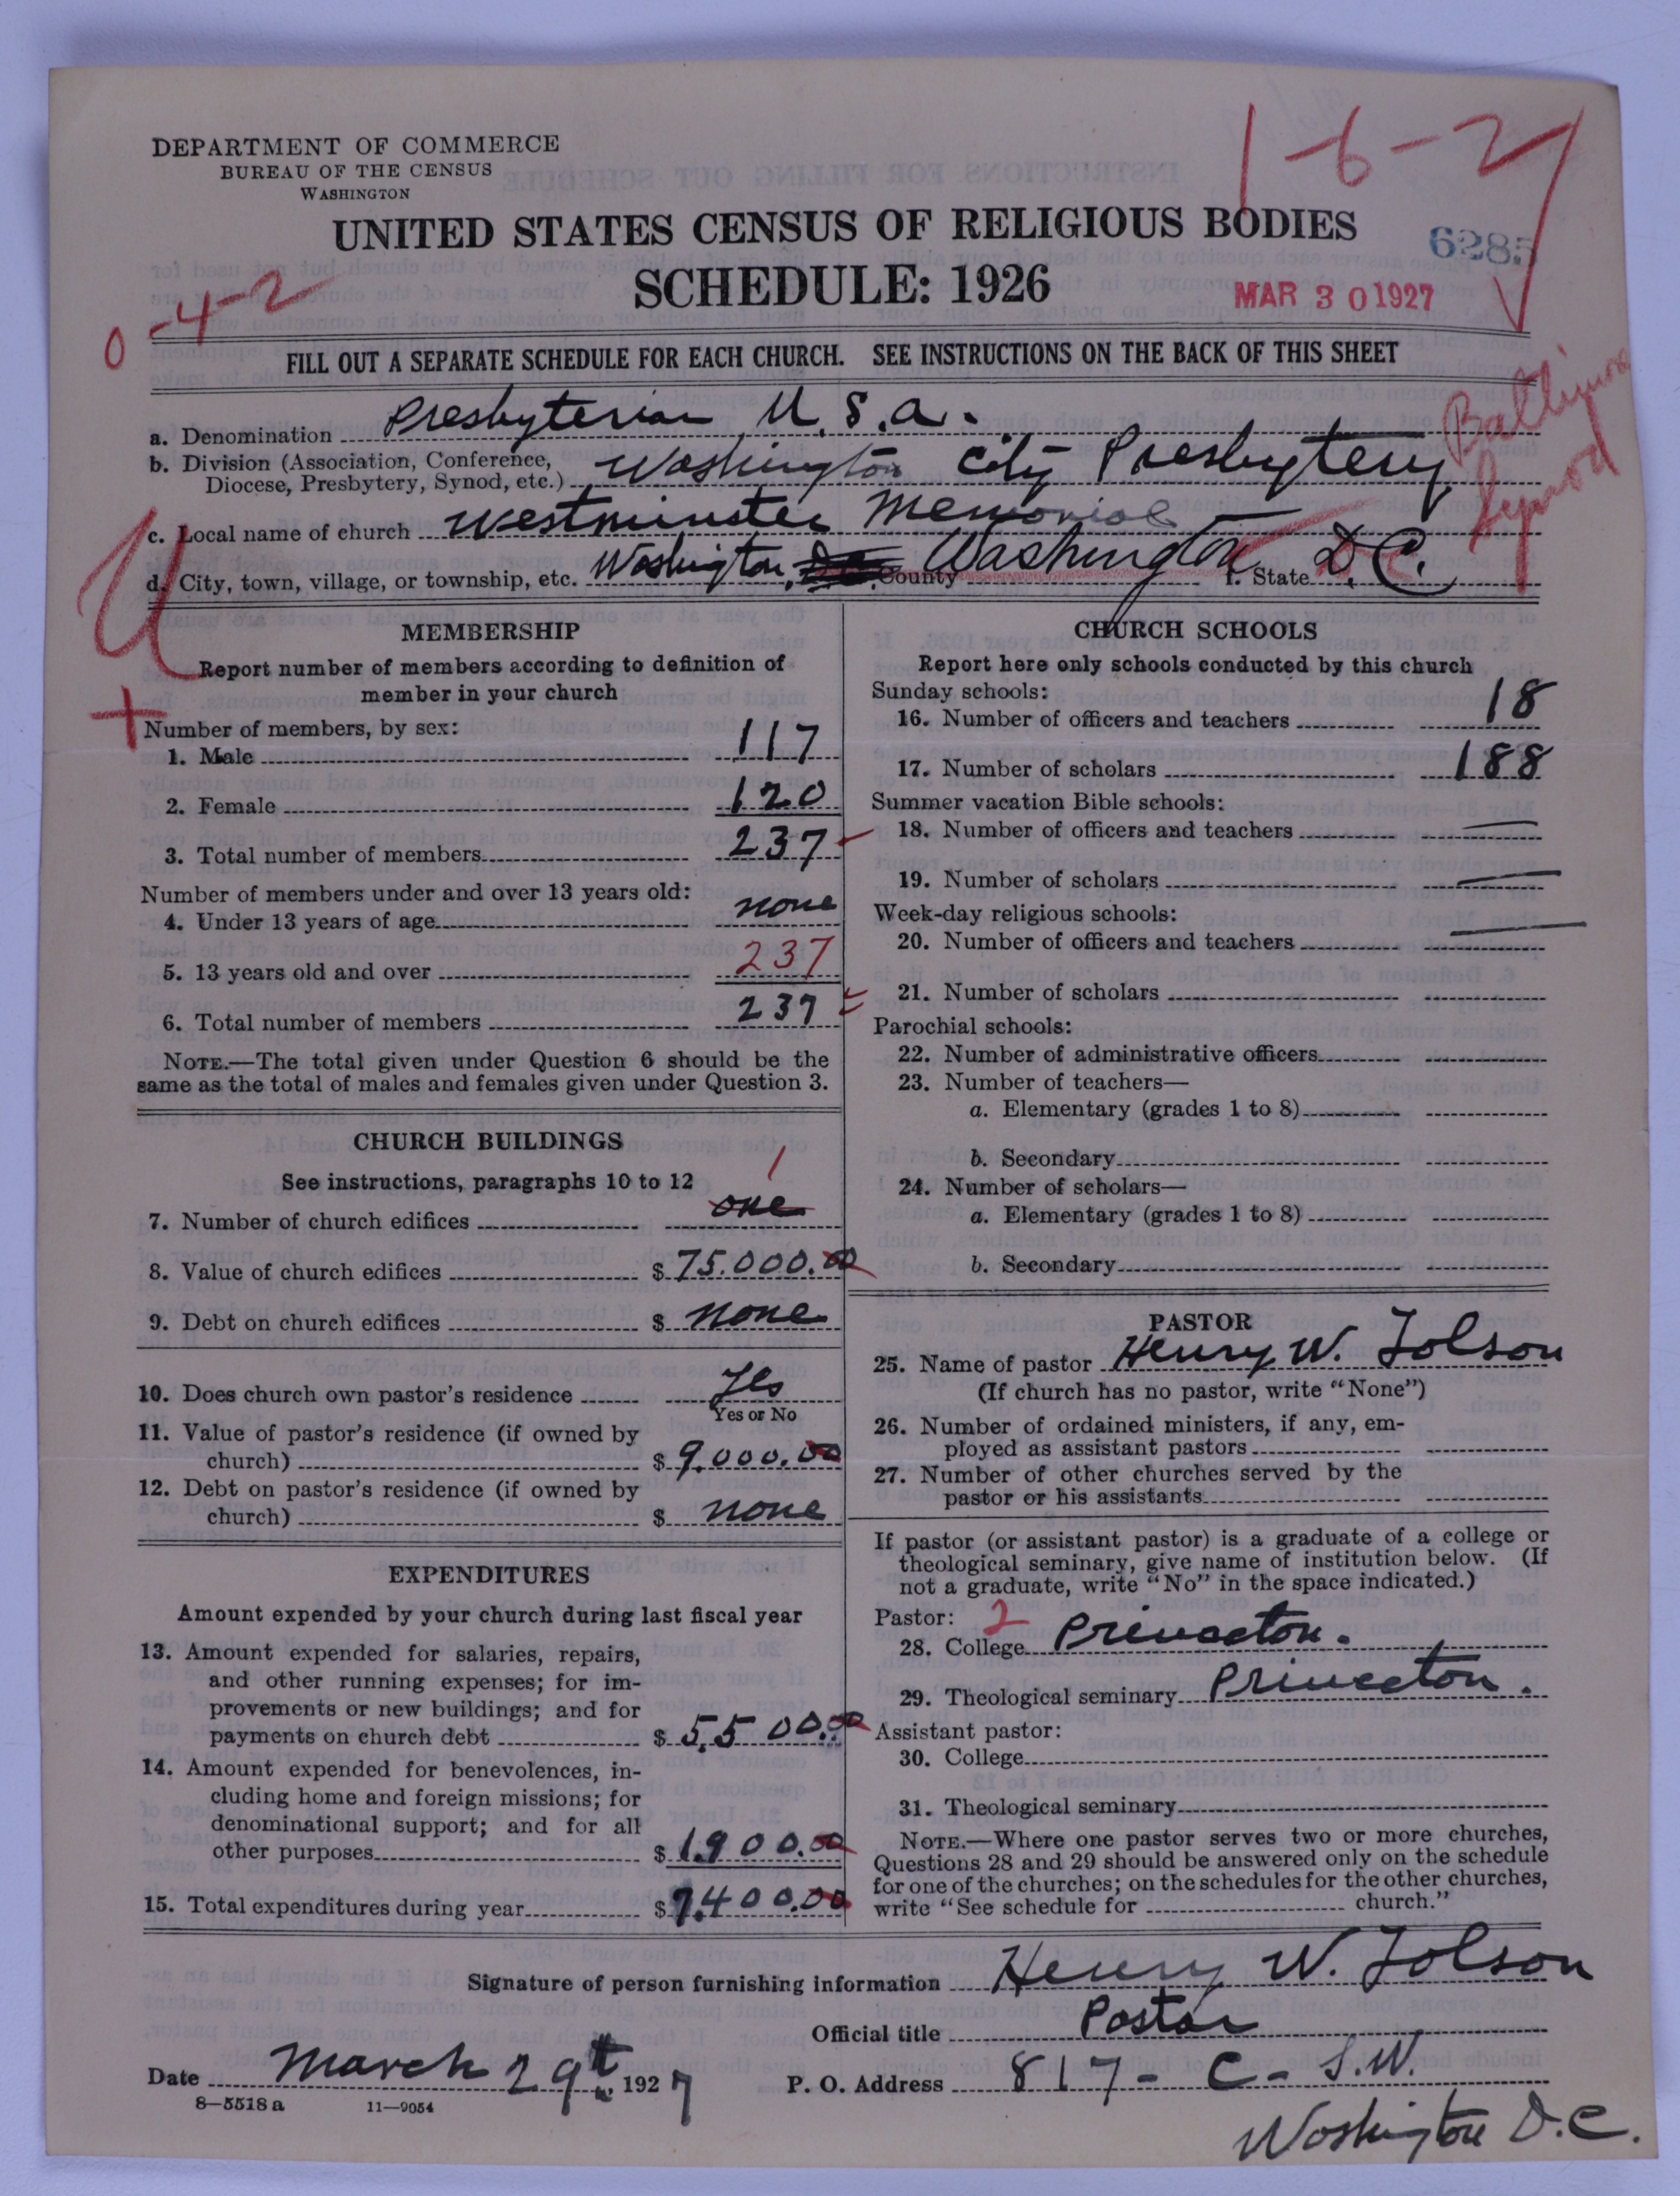 1-6-2
DEPARTMENT OF COMMERCE
BUREAU OF THE CENSUS
WASHINGTON
UNITED STATES CENSUS OF RELIGIOUS BODIES
SCHEDULE: 1926
6285
MAR 30 1927
0-4-2
FILL OUT A SEPARATE SCHEDULE FOR EACH CHURCH. SEE INSTRUCTIONS ON THE BACK OF THIS SHEET
a. Denomination Presbyterian U.S.A.
b. Division (Association, Conference, Diocese, Presbytery, Synod, etc.) Washington City Presbytery
Baltimore Synod
c. Local name of church Westminster Memorial
d. City, town, village, or township, etc. Washington, County Washington f. State D.C.
U
+
MEMBERSHIP
Report number of members according to definition of
member in your church
Number of members, by sex:
1. Male 117
2. Female 120
3. Total number of members 237
Number of members under and over 13 years old:
4. Under 13 years of age none
5. 13 years old and over 237
6. Total number of members 237
NOTE.—The total given under Question 6 should be the
same as the total of males and females given under Question 3.
CHURCH BUILDINGS
See instructions, paragraphs 10 to 12
1
7. Number of church edifices one
8. Value of church edifices $ 75.000.00
9. Debt on church edifices $ none
10. Does church own pastor's residence Yes
Yes or No
11. Value of pastor's residence (if owned by
church) $ 9.000.00
12. Debt on pastor's residence (if owned by
church) $ none
EXPENDITURES
Amount expended by your church during last fiscal year
13. Amount expended for salaries, repairs,
and other running expenses; for im-
provements or new buildings; and for
payments on church debt $ 5,500.00
14. Amount expended for benevolences, in-
cluding home and foreign missions; for
denominational support; and for all
other purposes $ 1.900.00
15. Total expenditures during year $ 7.400.00
CHURCH SCHOOLS
Report here only schools conducted by this church
Sunday schools:
16. Number of officers and teachers 18
17. Number of scholars 188
Summer vacation Bible schools:
18. Number of officers and teachers —
19. Number of scholars —
Week-day religious schools:
20. Number of officers and teachers —
21. Number of scholars
Parochial schools:
22. Number of administrative officers
23. Number of teachers—
a. Elementary (grades 1 to 8)
b. Secondary
24. Number of scholars—
a. Elementary (grades 1 to 8)
b. Secondary
PASTOR
25. Name of pastor Henry W. Tolson
(If church has no pastor, write "None")
26. Number of ordained ministers, if any, em-
ployed as assistant pastors
27. Number of other churches served by the
pastor or his assistants
If pastor (or assistant pastor) is a graduate of a college or
theological seminary, give name of institution below. (If
not a graduate, write "No" in the space indicated.)
Pastor: 2
28. College Princeton.
29. Theological seminary Princeton.
Assistant pastor:
30. College
31. Theological seminary
NOTE.—Where one pastor serves two or more churches,
Questions 28 and 29 should be answered only on the schedule
for one of the churches; on the schedules for the other churches,
write "See schedule for church."
Signature of person furnishing information Henry W. Tolson
Official title Pastor
Date March 29th, 1927
P. O. Address 817 - C - S.W.
Washington D.C.
8—5518 a 11—9054